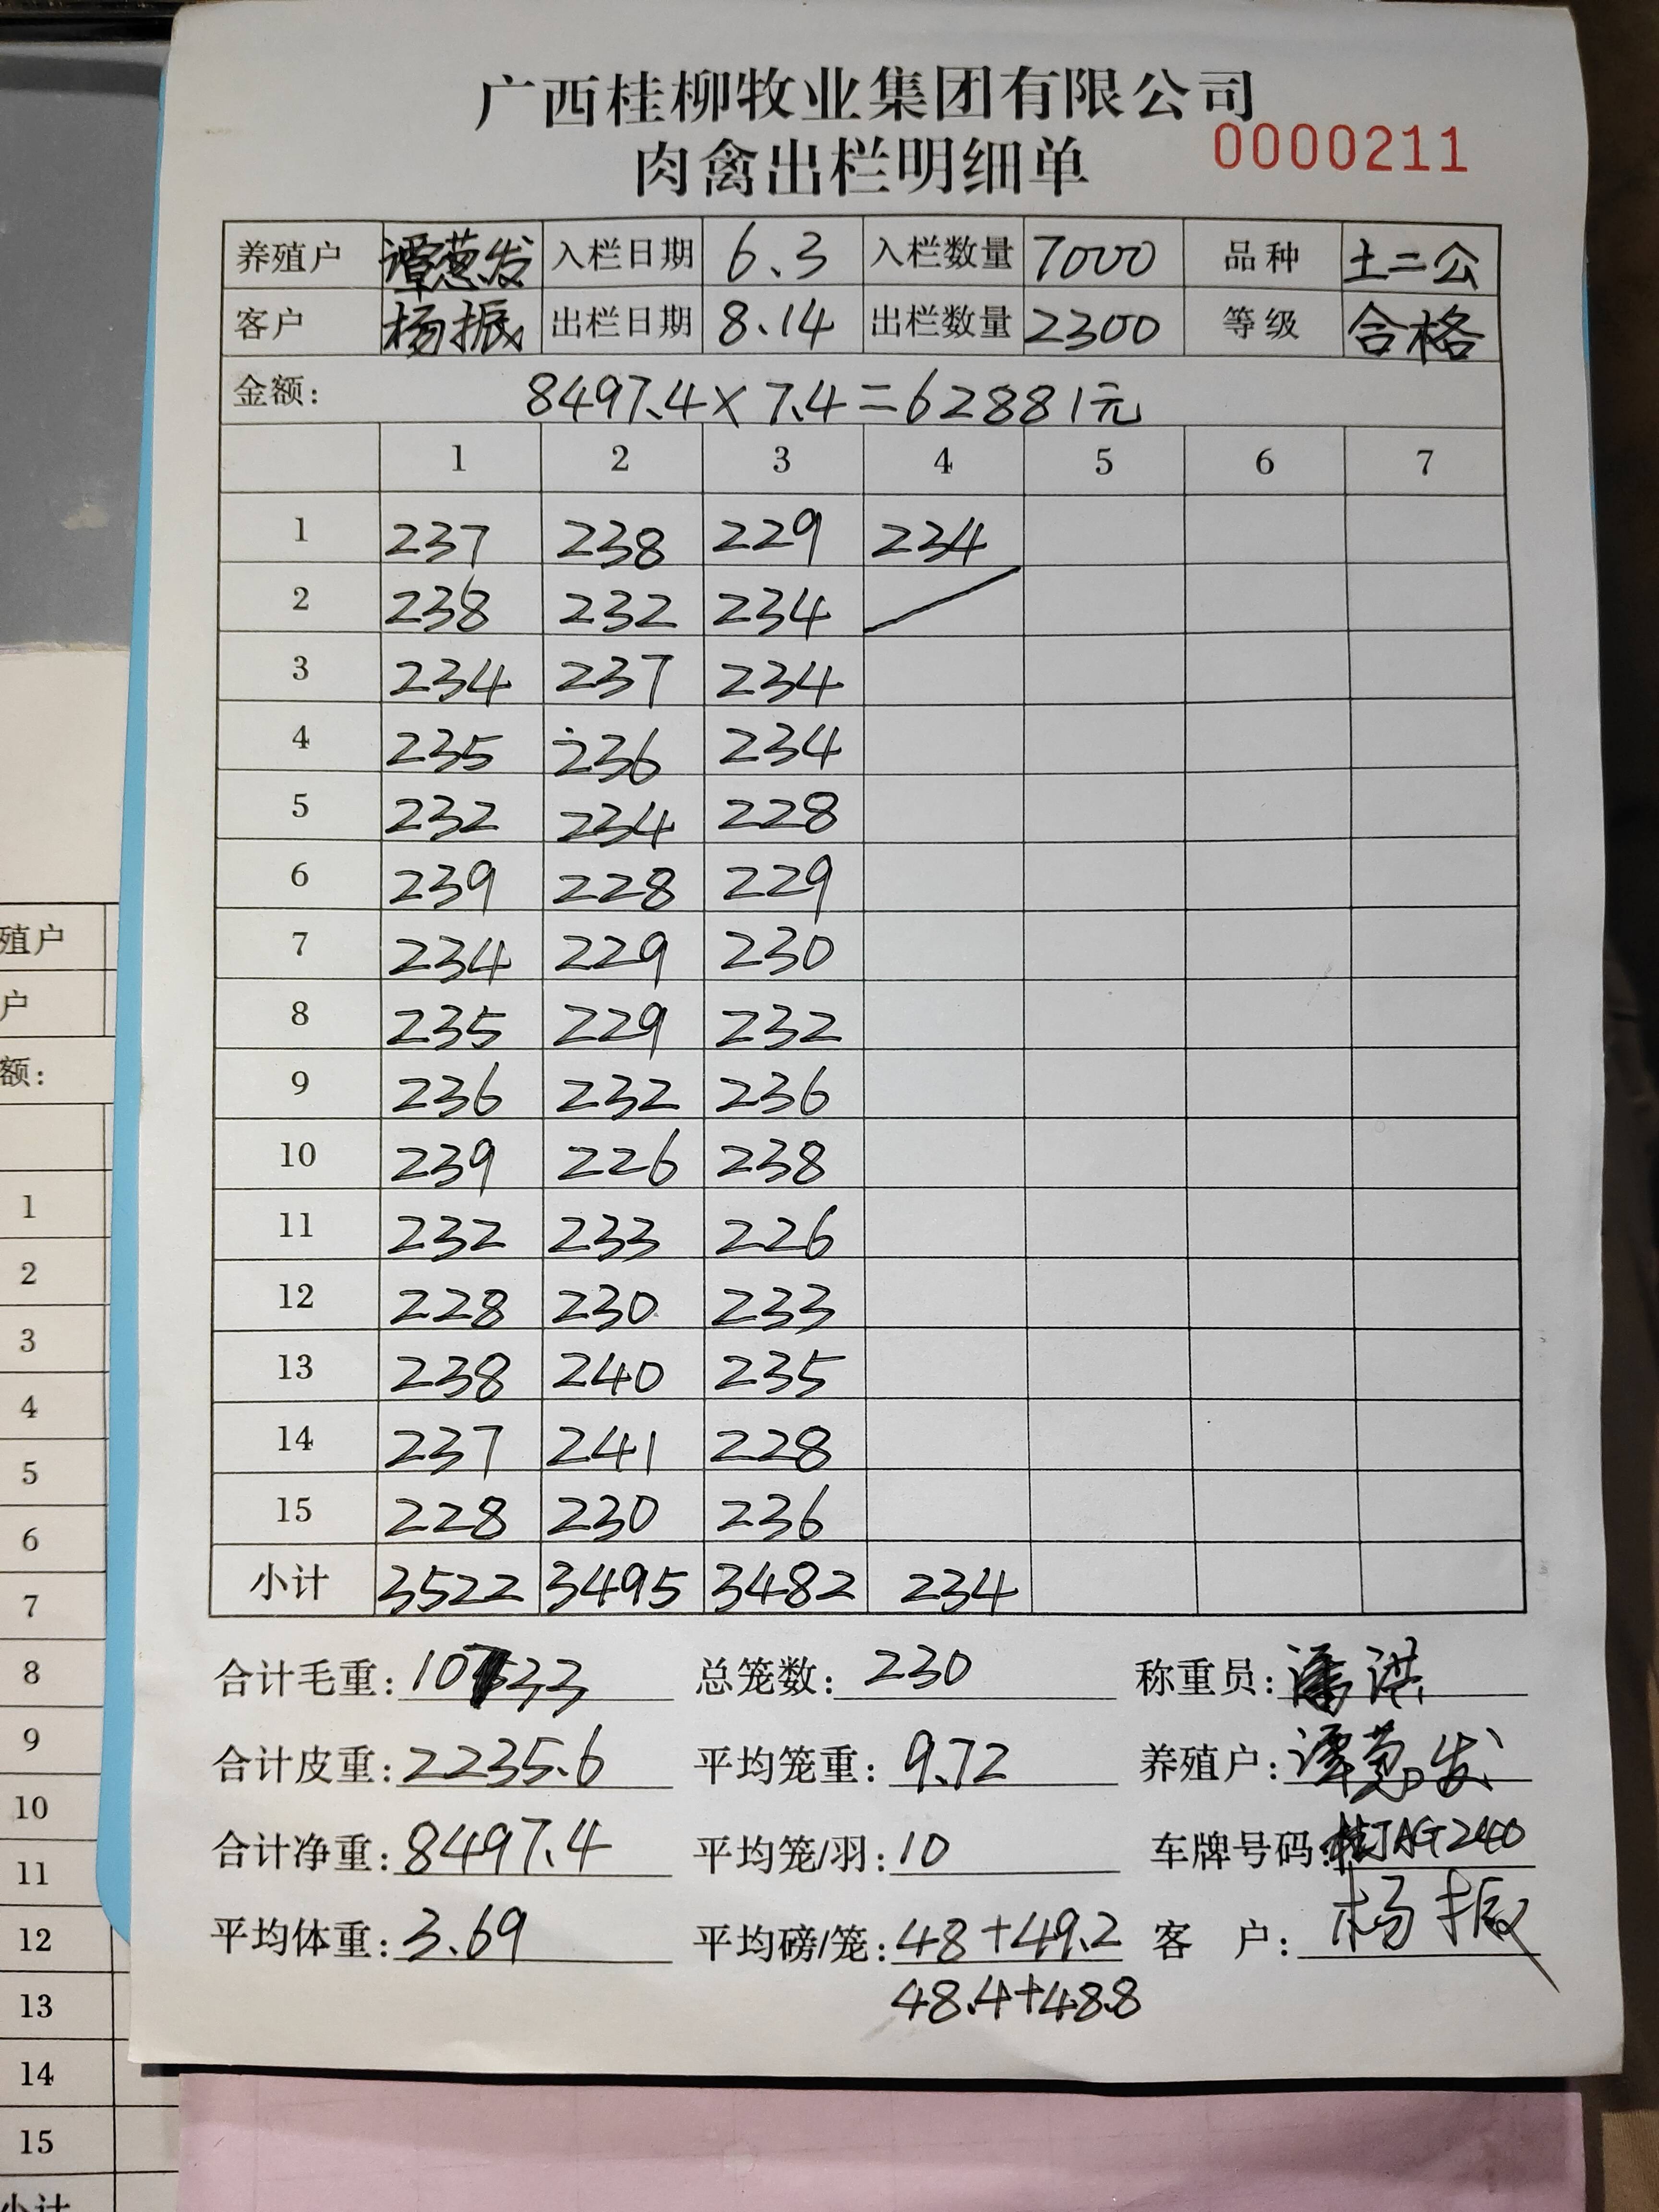 广西桂柳牧业集团有限公司
肉禽出栏明细单 0000211
养殖户 谭葱发 入栏日期 6.3 入栏数量 7000 品种 土二公
客户 杨振 出栏日期 8.14 出栏数量 2300 等级 合格
金额: 8497.4×7.4=62881元
1 2 3 4 5 6 7
1 237 238 229 234
2 238 232 234
3 234 237 234
4 235 236 234
5 232 234 228
6 239 228 229
7 234 229 230
8 235 229 232
9 236 232 236
10 239 226 238
11 232 233 226
12 228 230 233
13 238 240 235
14 237 241 228
15 228 230 236
小计 3522 3495 3482 234
合计毛重: 10733 总笼数: 230 称重员: 洪
合计皮重: 2235.6 平均笼重: 9.72 养殖户: 谭葱发
合计净重: 8497.4 平均笼/羽: 10 车牌号码: 桂JAG240
平均体重: 3.69 平均磅/笼: 48+49.2 客 户: 杨振
48.4+48.8
殖户
户
额:
1
2
3
4
5
6
7
8
9
10
11
12
13
14
15
小计